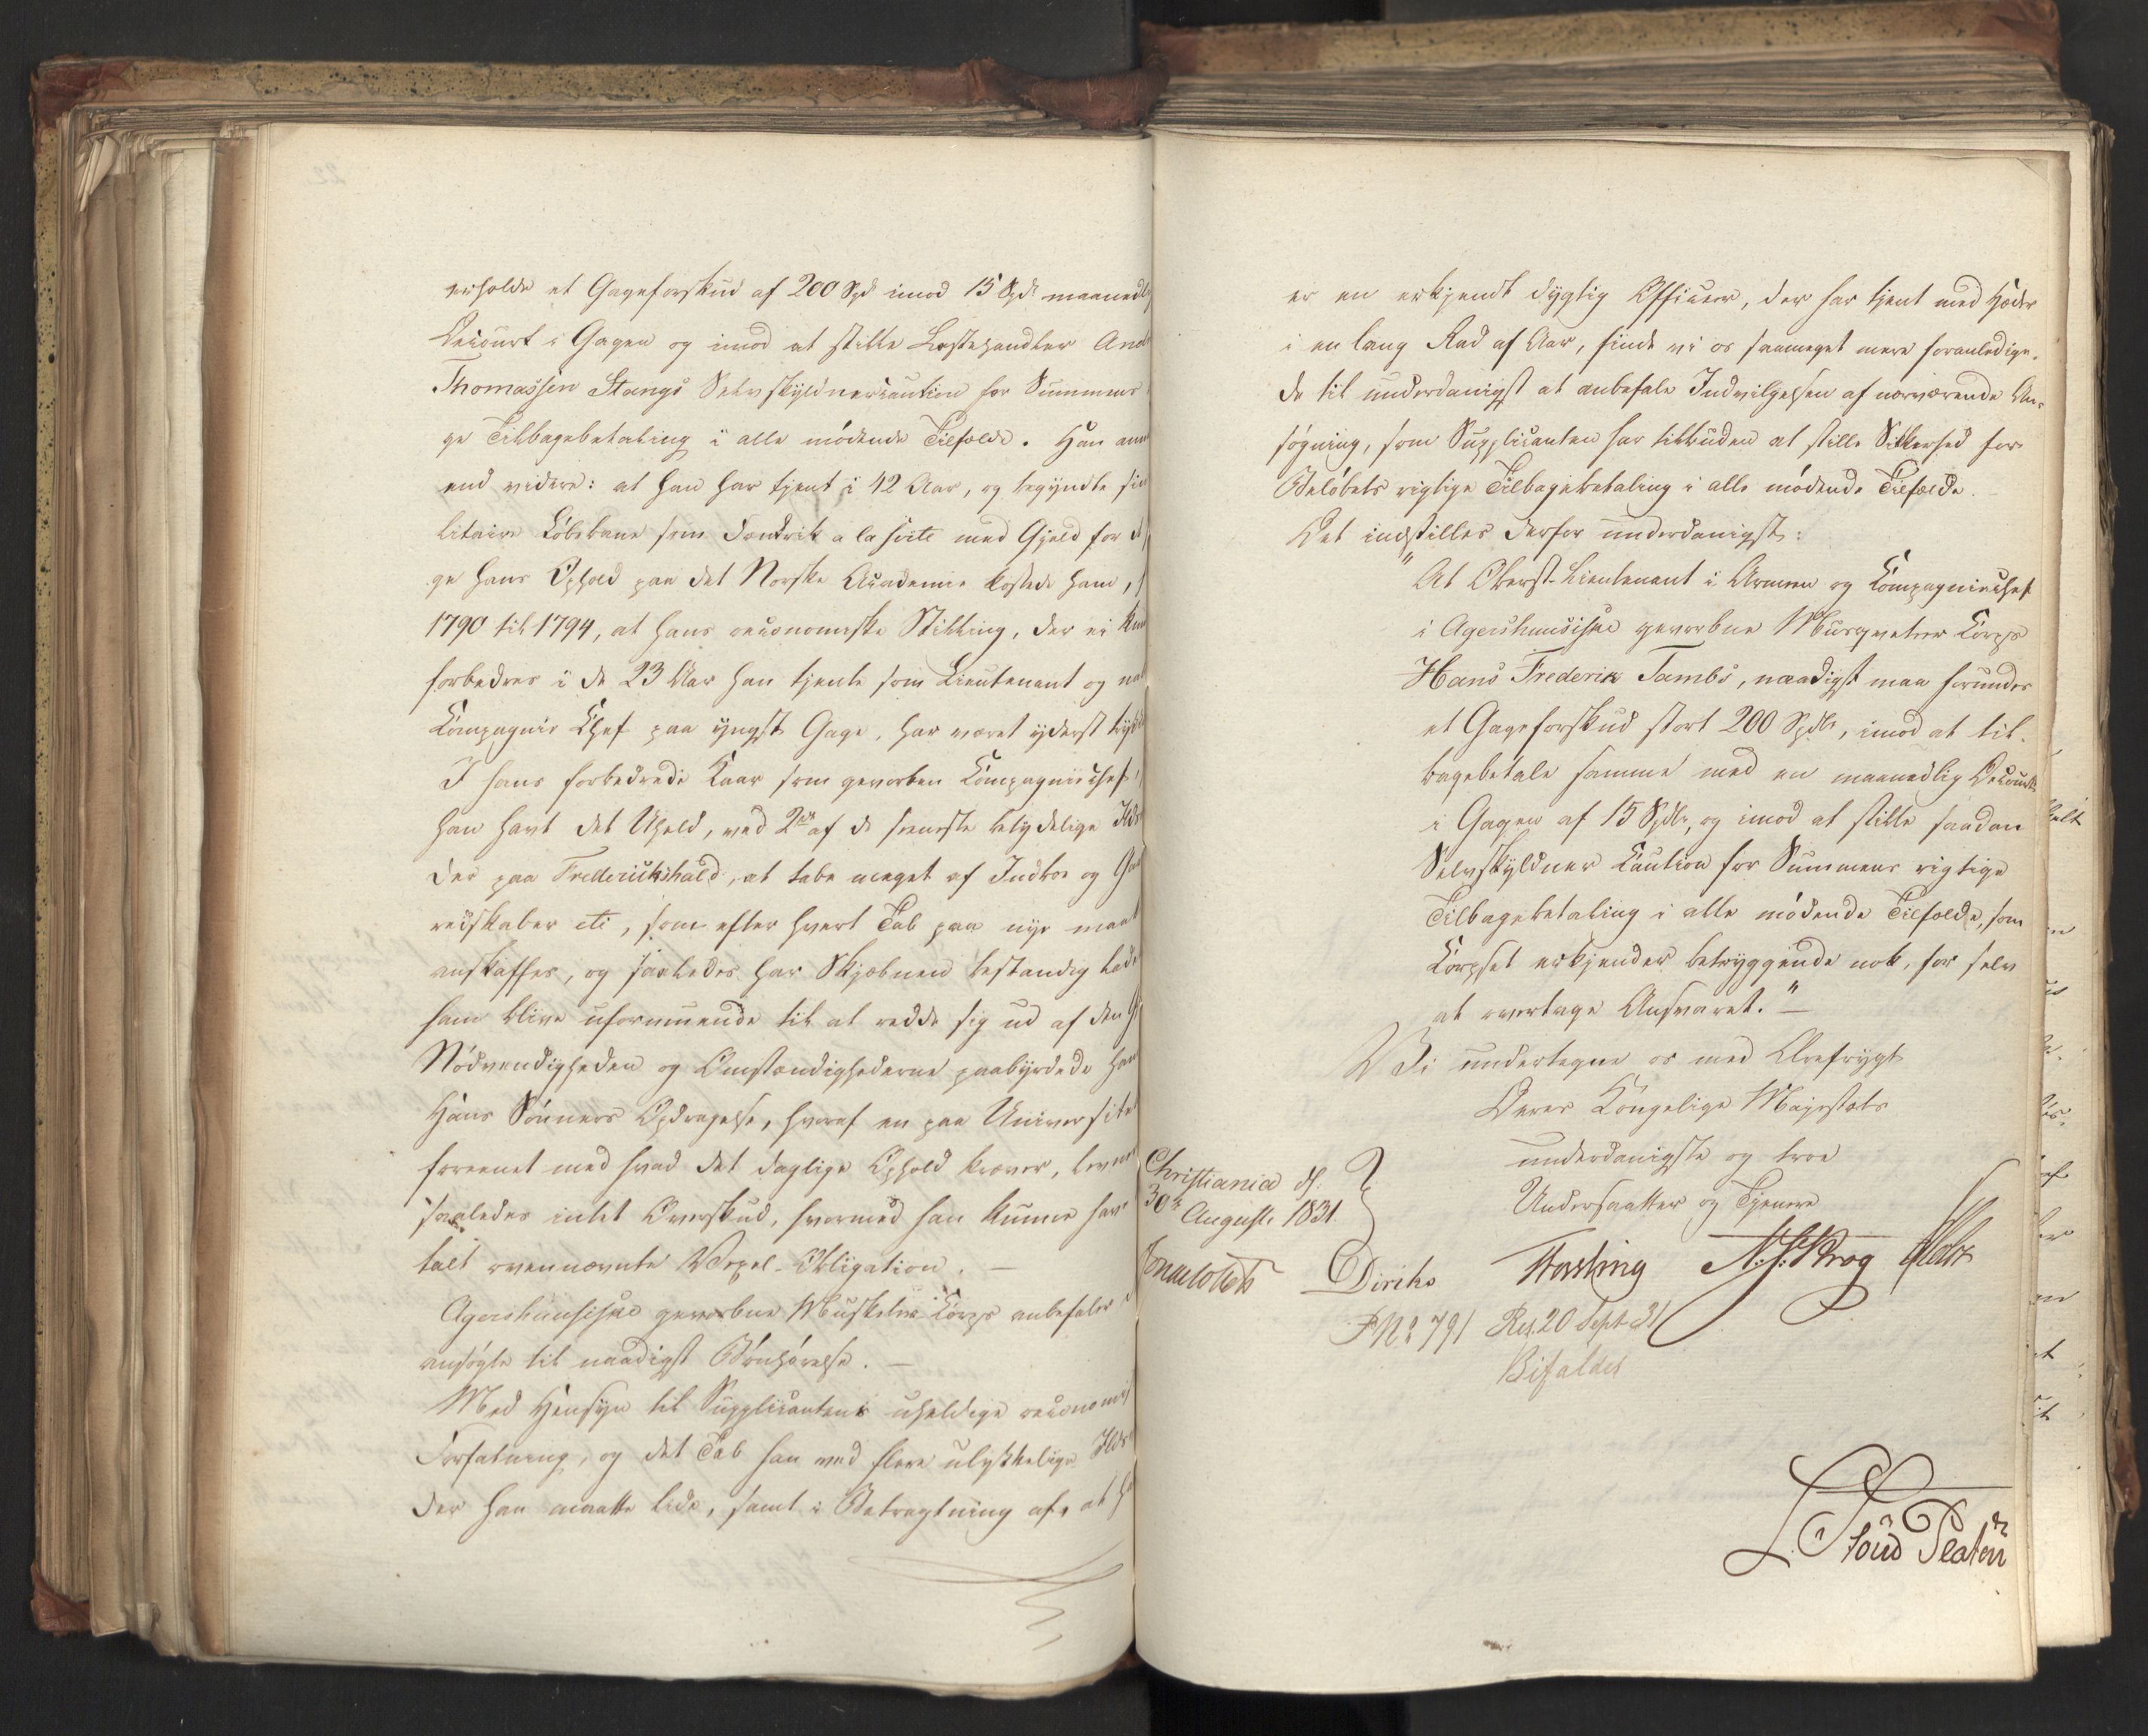 erholde et Gageforskud af 200 Spd imod 15 Spd maanedlig
Decourt i Gagen og imod at stille Lastehandler And
Thomassen Stangs Selvskyldnercaution for Summens
ge Tilbagebetaling i alle mödende Tilfælde. Han anm
end videre: at han har tjent i 42 Aar, og begyndte sin
litaire Löbebane som Landcadet a la suite med Gjeld for d
ge hans Ophold paa det Norske Academie kostede ham,
1790 til 1794, at hans oeconomiske Stilling, der ei kun
forbedres i de 23 Aar han tjente som Lieutenant og
Compagnie Chef paa yngst Gage, har været yderst tryk
I hans forbedrede Kaar som geworben Compagniechef,
han havt det Uheld, ved 2de af de seneste betydelige Ilde
der paa Frederichshald, at tabe meget af Indboe og
redskaber etc, som efter hvert Tab paa nye maat
anskaffes, og saaledes har Skjæbnen bestandig ladet
ham blive uformuende til at redde sig ud af den G
Nödvendigheden og Omstændighederne paabyrdede ham
Hans Sönners Opdragelse, hvoraf en paa Universitet
foreenet med hvad det daglige Ophold kræver, levne
saaledes intet Overskud, hvormed han kunne have
talt ovennævnte Vexel-Obligation. —
Agershuusiske geworbne Musketeer Corps anbefaler
ansögte til naadigst Bönhörelse. —
Med Hensyn til Supplicantens uheldige oeconomis
Forfatning, og det Tab han ved flere ulykkelige Ilds
der han maatte lide, samt i Betragtning af, at h
er en erkjendt dygtig Officeer, der har tjent med Hæder
i en lang Rad af Aar, finde vi os saameget mere foranledige-
de til underdanigst at anbefale Indvilgelsen af nærværende An-
søgning, som Supplicanten har tilbuden at stille Sikkerhed for
Belöbets rigtige Tilbagebetaling i alle mödende Tilfælde.
Det indstilles derfor underdanigst:
"At Oberst-Lieutenant i Armeen og Compagniechef
i Agershuusiske geworbne Musqueteer Corps
Hans Frederik Tambs, naadigst maa forundes
et Gageforskud stort 200 Spdlr, imod at til-
bagebetale samme med en maanedlig Decourt
i Gagen af 15 Spdlr, og imod at stille saadan
Selvskyldner Caution for Summens rigtige
Tilbagebetaling i alle mödende Tilfælde, som
Corpset erkjender betryggende nok, for selv
at overtage Ansvaret." —
Vi undertegne os med Ærefrygt
Deres Kongelige Majestæts
underdanigste og troe
Undersaatter og Tjenere
Christiania d:
30te August 1831.
Diriks Fasting N. J. Krog
P No 791 Res. 20 Sept 31
Bifaldes